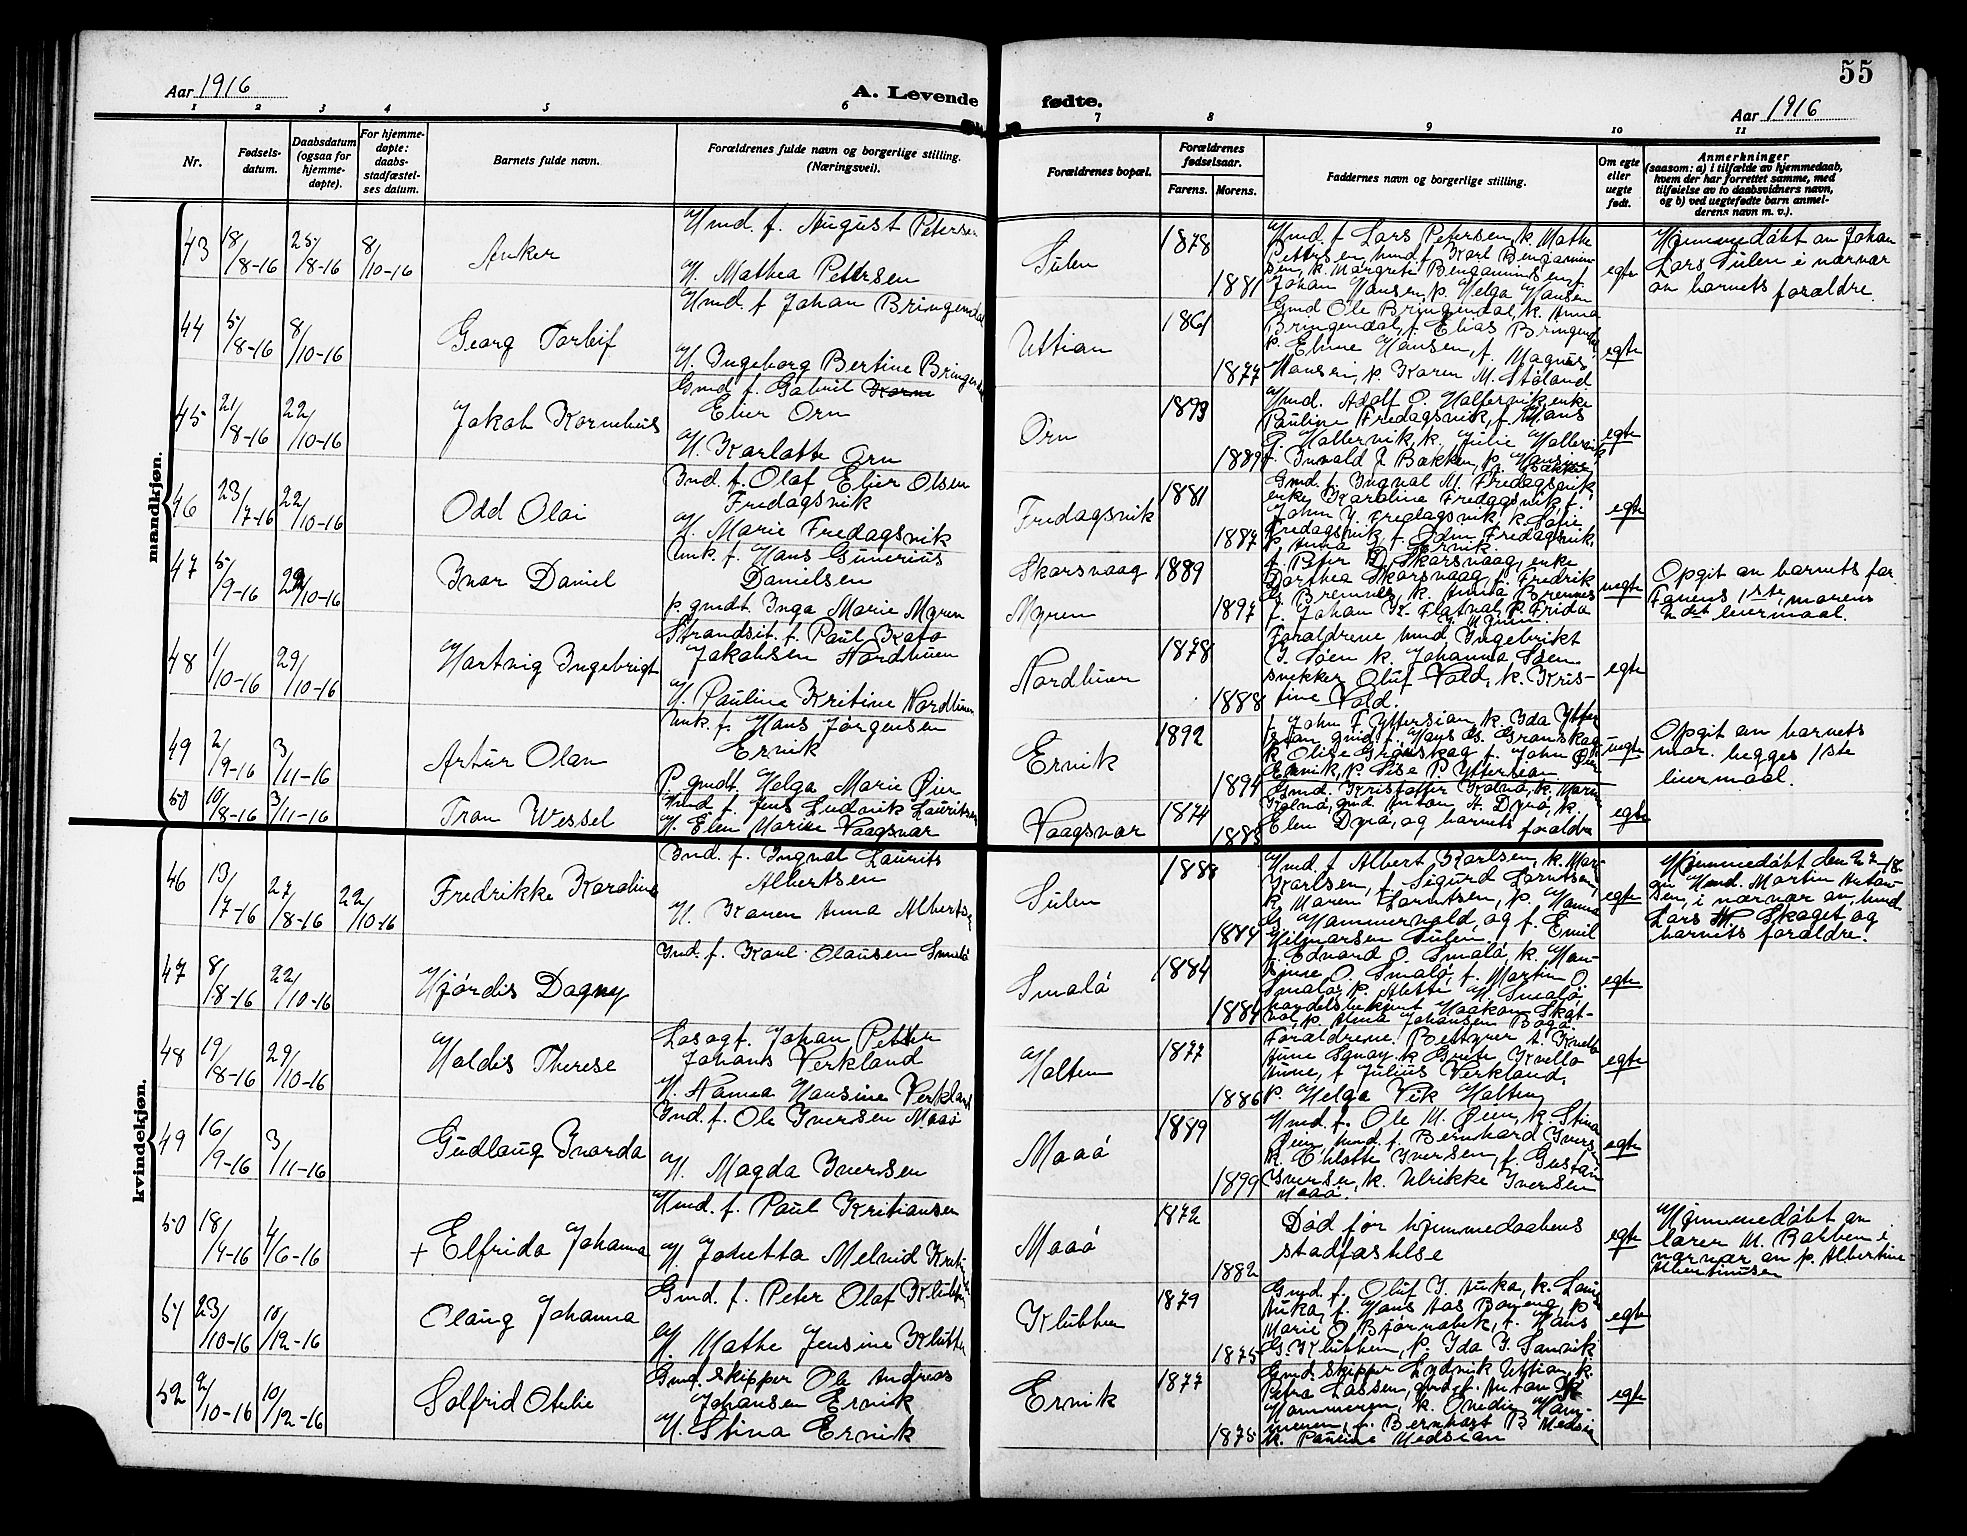 55
Aar 1916
A. Levende
fødte.
Aar 1916
1 2 3 4 5 6 7 8 9 10 11
Nr.
Fødselsdatum.
Daabsdatum (ogsaa for hjemmedøpte).
For hjemmedøpte: daabsstadfæstelses datum.
Barnets fulde navn.
Forældrenes fulde navn og borgerlige stilling. (Næringsvei).
Forældrenes bopæl.
Forældrenes fødselsaar.
Farens. Morens.
Faddernes navn og borgerlige stilling.
Om egte eller uegte født.
Anmerkninger
(saasom: a) i tilfælde av hjemmedaab,
hvem der har forrettet samme, med
tilføielse av to daabsvidners navn,
og b) ved uegtefødte barn anmelderens navn m. v.).
mandkjøn.
43 18/8-16 25/8-16 8/10-16 Anker
Hmd. f. August Petersen
H. Mathea Pettersen
Sulen 1878 1881
Hmd. f Lars Petersen, k. Mathe
Pettersen, hmd. f Karl Bengamin
sen, k. Margrete Bengaminsen f
Johan Hansen, p. Helga Hansen
egte
Hjemmedøbt av Johan
Lars Sulen i nærvær
av barnets forældre.
44 5/8-16 8/10-16 Georg Torleif
Hmd. f Johan Bringendal
H. Ingeborg Bertine Bringendal
Uttian 1861 1877
Gmd Ole Bringendal, k. Anna
Bringendal, f. Elias Bringendal
p. Eline Hansen, f. Magnus
Hansen, p. Karen M. Støland
egte
45 21/8-16 22/10-16 Jakob Kornelius
Gmd. f. Gabriel
Elier Orn
H. Karlotte Orn
Orn 1893 1889
Hmd. Adolf O. Hallervik, enke
Pauline Fredagsvik, f. Hans
P. Hallervik, k. Julie Hallervik
f. Invald J Bakken, p. Hansine
Bakken
egte
46 23/7-16 22/10-16 Odd Olai
Ind. f. Olaf Elier Olsen
Fredagsvik
H. Marie Fredagsvik
Fredagsvik 1881 1887
Gmd. f. Ingval M. Fredagsvik
enke Karoline Fredagsvik, f.
John Y. Fredagsvik, k. Sofie
Fredagsvik, f. Odin Fredagsvik,
p. Anna Ervik.
egte
47 5/9-16 29/10-16 Ivar Daniel
Unk. f. Hans Gunerius
Danielsen
p. gmdt. Inga Marie Myren
Skarsvaag
Myren 1889 1897
f. Peter D. Skarsvaag, enke
Dorthea Skarsvaag, f. Fredrik
G Bremnes, k. Anna Bremnes
f. Johan K. Flatval, p. Frida
J. Myren.
uegte
Opgit av barnets far
Farens 1ste, morens
2det leiermaal.
48 1/10-16 29/10-16 Hartvig Ingebrigt
Strandsit. f. Paul Kato
Jakobsen Nordbuen
H. Pauline Kritine Nordbuen
Nordbuen 1878 1888
Forældrene hmd Ingebrikt
J. Søen k. Johanna Søen
snekker Oluf Vold, k. Kris-
tine Vold.
egte
49 2/9-16 3/11-16 Artur Olav
Unk. f. Hans Jørgensen
Ervik
P. gmdt. Helga Marie Øien
Ervik 1892 1894
f. John F Yttersian, k. Ida Ytter
sian, gmd. f. Hans G. Grønskag
k. Olise Grønskag f. John Øien
Ervik, p. Lise P. Yttersian
uegte
Opgit av barnets
mor. begges 1ste
leiermaal.
50 10/8-16 3/11-16 Tran Wessel
Hmd f. Jens Ludvik Lauritsen
H. Elen Marie Vaagsvær
Vaagsvær 1874 1883
Gmd. Kristoffer Kalvø, k. Maren
Kalvø, gmd. Anton A. Dyrø, k.
Elen Dyrø, og barnets forældre
egte
kvindekjøn.
46 13/7-16 27/8-16 22/10-16 Fredrikke Karoline
Ind. f. Ingval Laurits
Albertsen
H. Karen Anna Albertsen
Sulen 1888 1884
Hmd. f Albert Karlsen, k. Mari
Karlsen, f. Sigurd Larntsen,
k. Maren Larntsen, p. Hanna
G Hammervold, og f. Emil
Hilmarsen Sulen.
egte
Hjemmedøbt den 27-18.
av Hmd. Martin Antonsen, i nærvær av hmd
Lars Skaget og
barnets forældre.
47 8/8-16 22/10-16 Hjørdis Dagny
Ind. f. Karl Olausen Smalø
Smalø 1884 1884
f. Edvard O. Smalø, k. Han-
sine O. Smalø, f. Martin O.
Smalø, p. Alette M. Smalø
handelsbetjent Haakon Skat-
val, p. Anna Johansen Bogø.
egte
48 19/8-16 29/10-16 Haldis Therese
Losogt. Johan Petter
Johans Verkland
H. Hanna Hansine Verkland
Holten 1877 1886
Forældrene. Bestyrer A. Kvello
k. Grete Kvello
f Julius Verkland,
p. Helga Vik Holten
egte
49 16/9-16 3/11-16 Gudlaug Ivarda
Ind. f. Ole Iversen Maaø
H. Magda Iversen
Maaø 1889 1899
Hmd. f. Ole M. Øien, k. Stina
Øien, hmd. f Bernhard Ivers,
k. Chlotte Iversen, f. Gustav
Iversen, k. Ulrikke Iversen
Maaø.
egte
50 18/4-16 4/6-16 + Elfrida Johanna
Hmd. f. Paul Kritiansen
H. Johetta Melvid Kriti
Maaø 1872 1882
Død før hjemmedaabens
stadfæstelse
egte
Hjemmedøbt av
lærer M. Bakken i
nærvær av p. Albertine
Albertinusen
51 23/10-16 10/12-16 Olaug Johanna
Gmd. f. Peter Olaf Klubben
H. Mathe Jensine Klubben
Klubben 1879 1875
Gmd. f. Oluf J. Auka, k. Laura
Auka, f. Hans Aas Baneng, p
Marie O Bjørnabek, f. Hans
G. Klubben, p. Ida J. Sanvik
egte
52 2/10-16 10/12-16 Solfrid Otelie
Gmd. skipper Ole Andreas
Johansen Ervik
H. Stina Ervik
Ervik 1877 1875
Gmd. Skipper Ludvik Uttian, k.
Petra Lassen, gmd. f. Anton
Hammeren, k. Ovedie Ham-
meren, f. Bernhart B Medsian
k. Pauline Medsian
egte